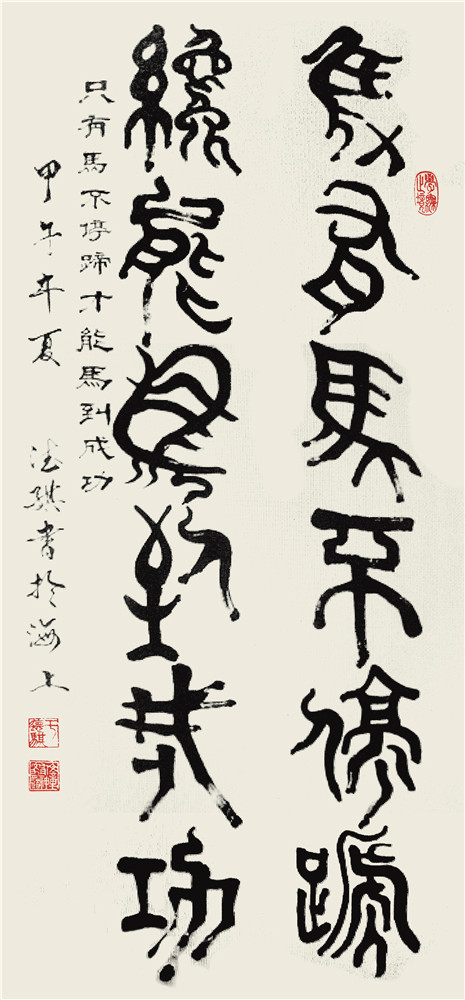 隻有馬不停蹏
纔能馬到成功
只有馬不停蹄才能馬到成功
甲午年夏 書於海上